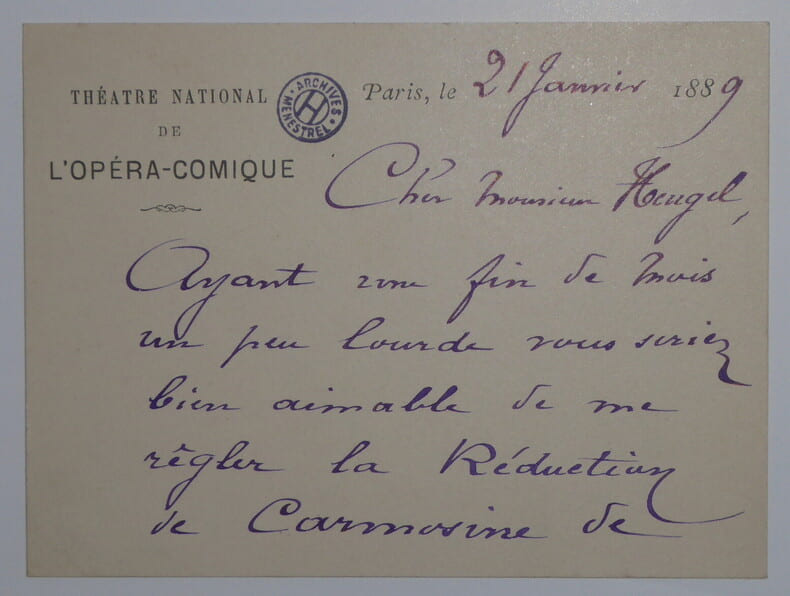 THÉATRE NATIONAL
DE
L'OPÉRA-COMIQUE
ARCHIVES
H
MENESTREL
Paris, le 21 Janvier 1889
Cher Monsieur Heugel,
Ayant une fin de mois
un peu lourde vous seriez
bien aimable de me
règler la Réduction
de Carmosine de